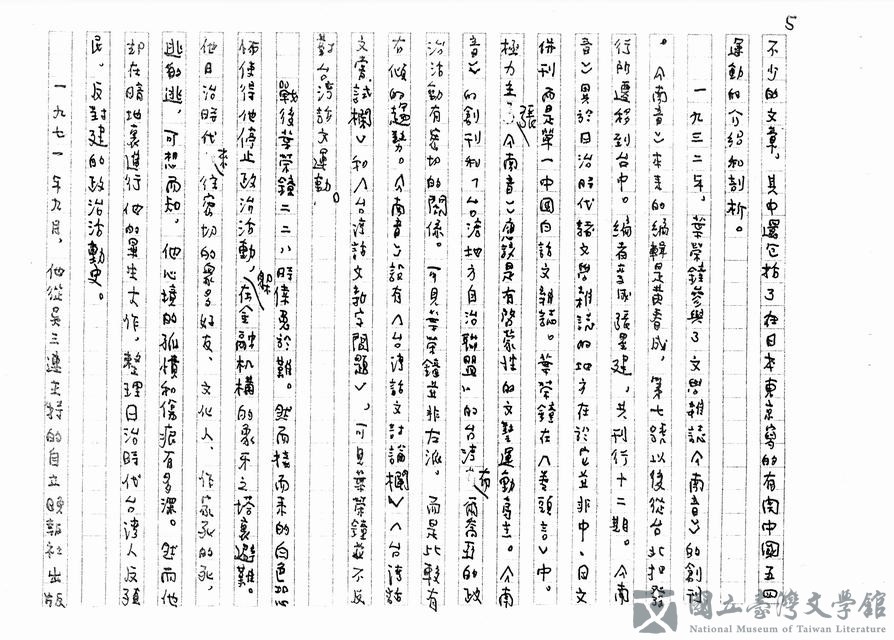 5
不少的文章，其中還包括了在日本東京寫的有關中國五四
運動的介紹和剖析。
一九三二年，葉榮鐘參與了文學雜誌《南音》的創刊
。《南音》本來的編輯是黃春成，第七號以後從台北把發
行所遷移到台中。編者變成張星建，共刊行十二期。《南
音》異於日治時代諸文學雜誌的地方在於它並非中、日文
併刊而是單一中國白話文雜誌。葉榮鐘在《卷頭言》中。
極力主張《南音》應該是有啓蒙性的文藝運動為主。《南
音》的創刊和「台灣地方自治聯盟」的台灣布爾喬亞的政
治活動有密切的關係。可見葉榮鐘並非左派。而是比較有
右傾的趨勢。《南音》設有《台灣話文討論欄》《台灣話
文嘗試欄》和《台灣話文新字問題》，可見葉榮鐘並不反
對台灣話文運動。
戰後葉榮鐘二二八時倖免於難。然而接而來的白色恐怖
使得他停止政治活動，躲在金融机構的象牙之塔裏避難。
他日治時代來往密切的眾多好友、文化人、作家死的死，
逃的逃，可想而知，他心境的孤憤和傷痕有多深。然而他
却在暗地裏進行他的畢生大作，整理日治時代台灣人反殖
民、反封建的政治活動史。
一九七一年九月，他從吳三連主持的自立晚報社出版
國立臺灣文學館
National Museum of Taiwan Literature